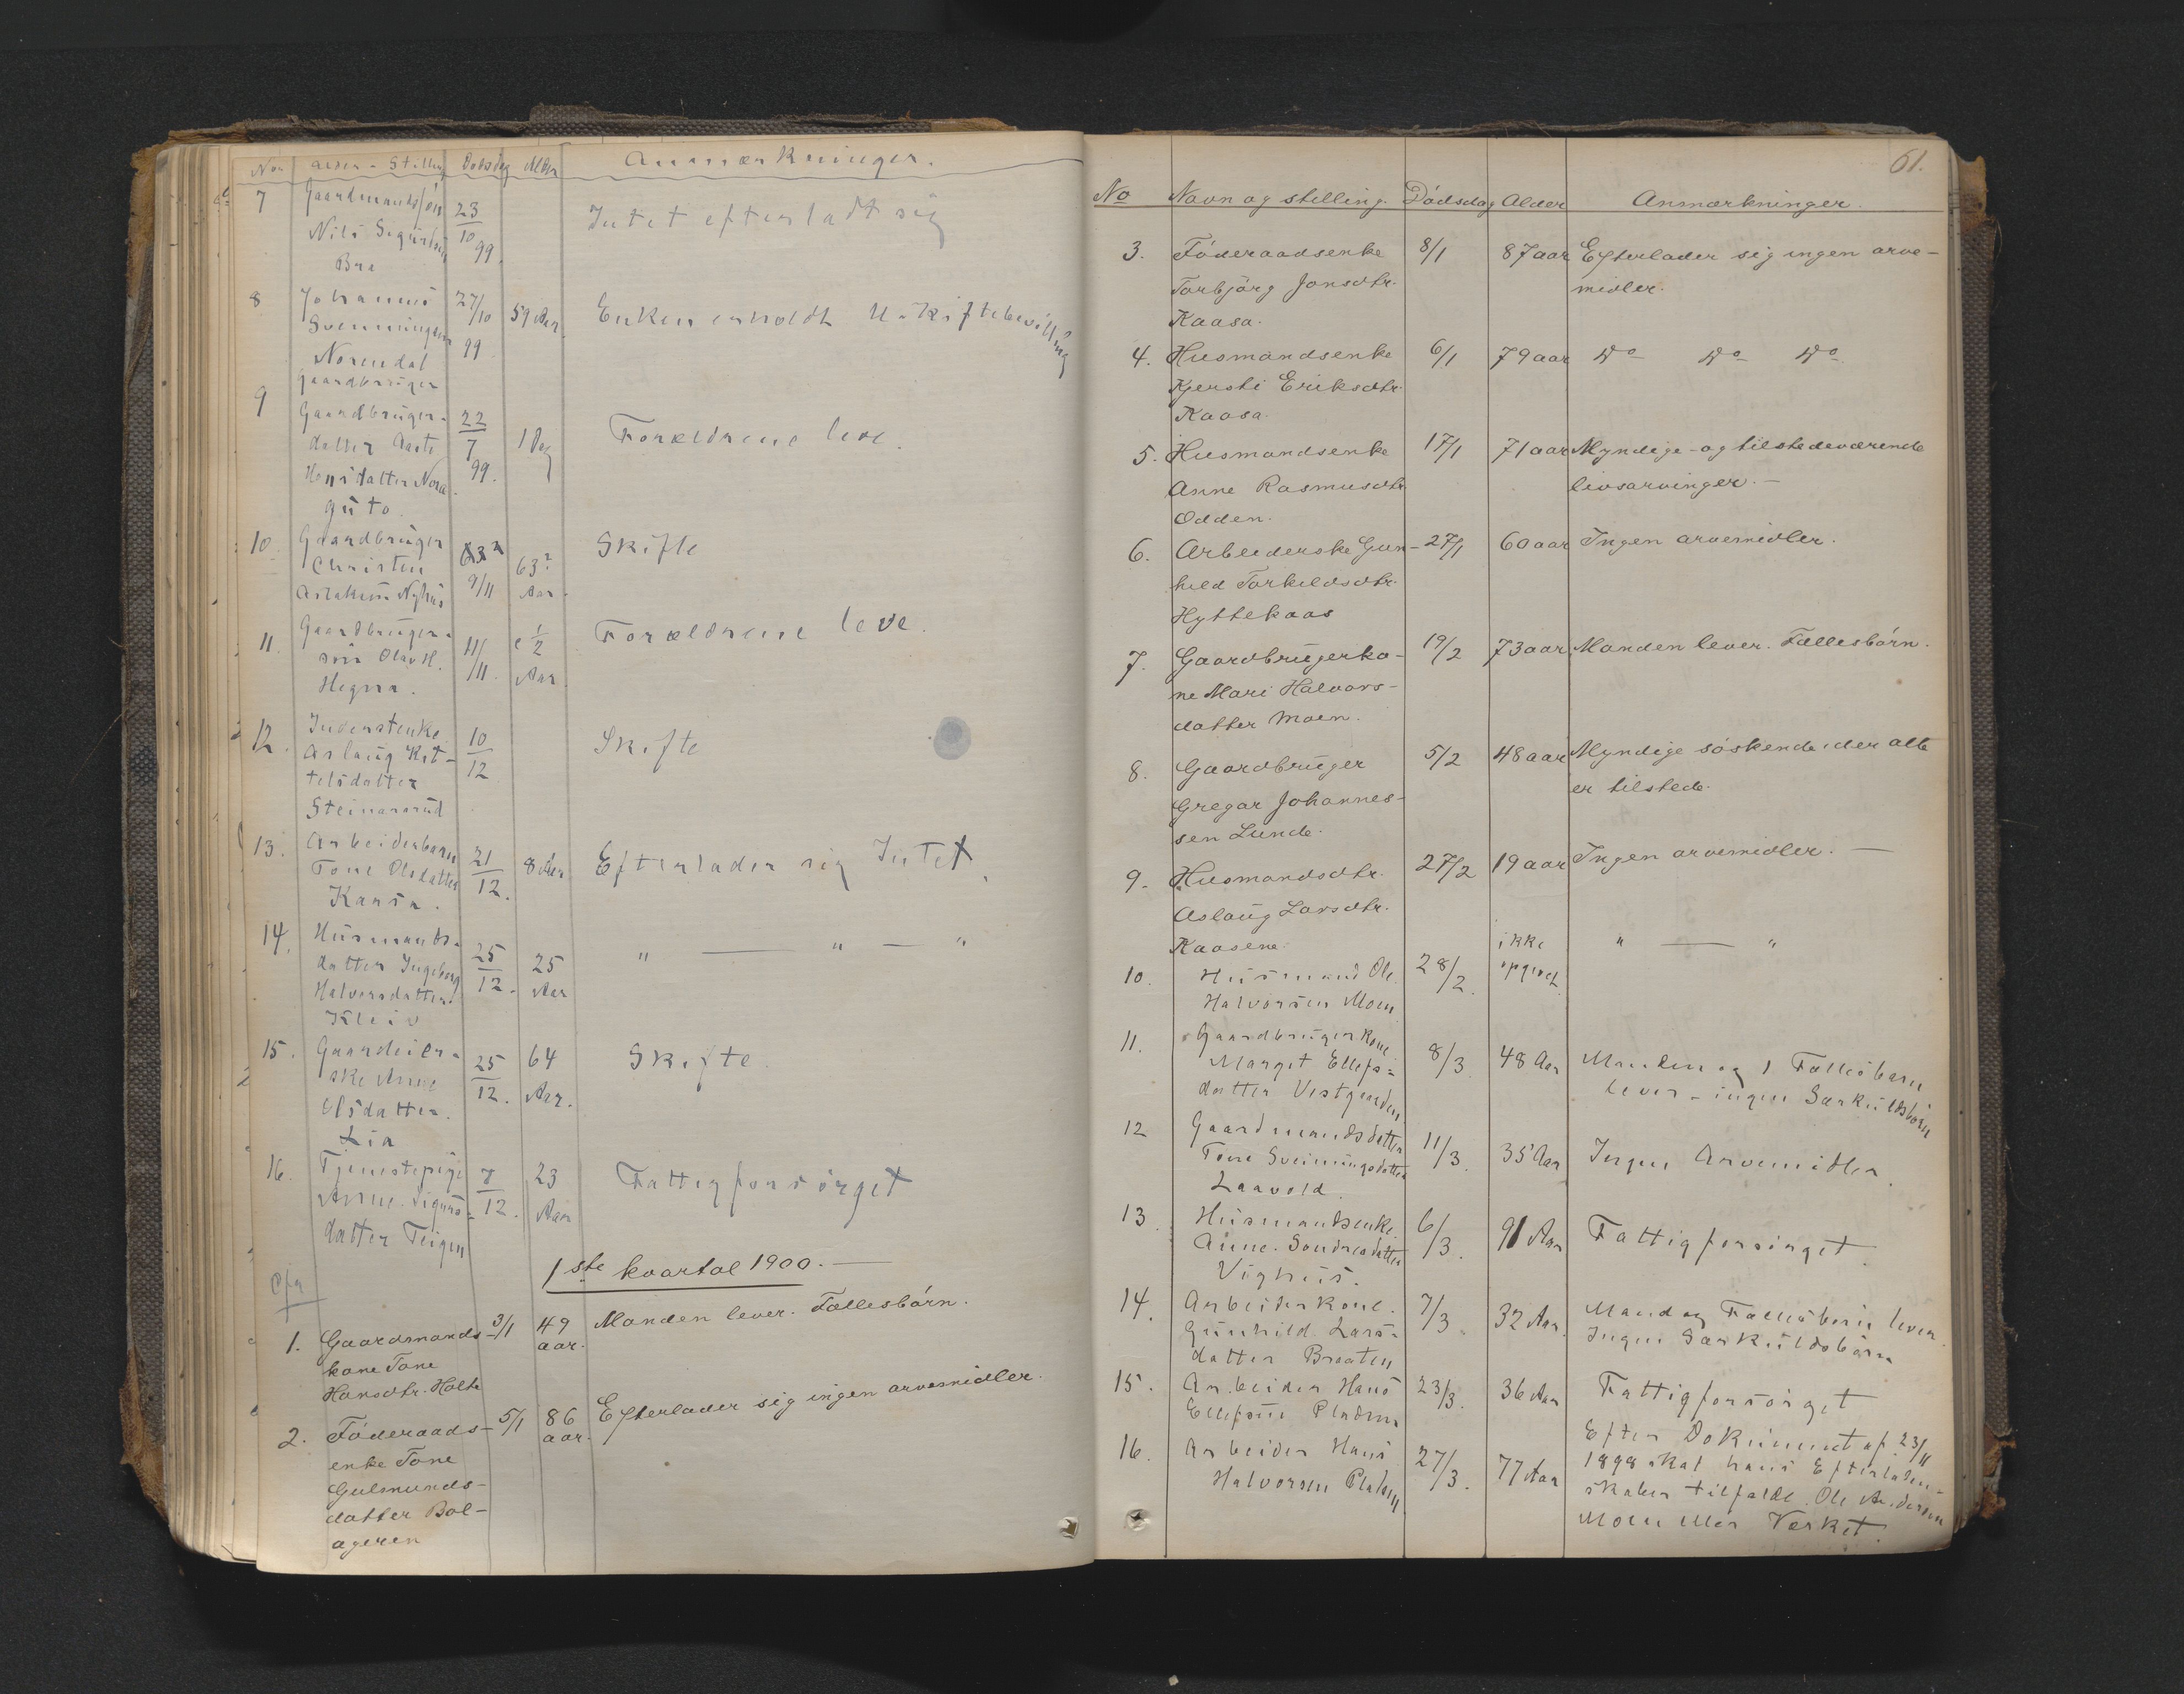 No Alder - Stilling Dødsdag Alder Anmærkninger.
7 Gaardmandssøn 23/10 99. Intet efterladt sig
Nils Sigurdsen
Bra
8 Johannes 27/10 99 59 Aar Enken erholdt Uskiftebevilling
Svenningsen
Norendal
Gaardbruger
9 Gaardbruger- 22/7 99. 1 Dag Forældrene leve.
datter Aaste
Hansdatter Nora
guto.
10. Gaardbruger 9/11 63? Aar. Skifte
Christen
Aslaksen Nyhus
11. Gaardbruger- 11/11. 1/2 Aar. Forældrene leve.
søn Olav H.
Hegna.
12. Inderstenke 10/12 Skifte
Aslaug Kit-
telsdatter
Steinarsrud
13. Arbeiderbarn 21/12. 8 Aar Efterlader sig Intet.
Tone Olsdatter
Kaasa.
14. Husmands- 25/12. 25 Aar " — " — "
datter Ingeborg
Halvorsdatter
Kleiv
15. Gaardeier- 25/12. 64 Aar. Skifte
ske Anne
Olsdatter.
Lia
16. Tjenestepige 7/12. 23 Aar Fattigforsørget
Anne Sigurds-
datter Teigen
1ste kvartal 1900. —
1. Gaardmands- 3/1 49 aar. Manden lever. Fællesbørn.
kone Tone
Hansdtr. Holte
2. Föderaads- 5/1 86 aar. Efterlader sig ingen arvemidler.
enke Tone
Gulmunds-
datter Bol-
ageren
61.
No Navn og stilling. Dödsdag Alder Anmærkninger.
3. Föderaadsenke 8/1 87 aar Efterlader sig ingen arve-
Torbjörg Jonsdtr. midler.
Kaasa.
4. Husmandsenke 6/1 79 aar Do Do Do
Kjersti Eriksdtr.
Kaasa.
5. Husmandsenke 17/1 71 aar Myndige- og tilstedeværende
Anne Rasmusdtr. livsarvinger. —
Odden.
6. Arbeiderske Gun- 27/1 60 aar Ingen arvemidler.
hild Torkildsdtr.
Hyttekaas
7. Gaardbrugerko- 19/2 73 aar Manden lever. Fællesbörn.
ne Mari Halvors-
datter Moen.
8. Gaardbruger 5/2 48 aar Myndige söskende, der alle
Gregar Johannes- er tilstede.
sen Lunde.
9. Husmandsdtr. 27/2 19 aar Ingen arvemidler. —
Aslaug Larsdtr.
Kaasene
10. Husmand Ole 28/2. ikke opgivet. " — "
Halvorsen Moen
11. Gaardbrugerkone 8/3 48 Aar Manden og 1 Fællesbarn
Marget Ellefs- lever - ingen Særkuldsbørn
datter Vestgaarden
12 Gaardmandsdatter 11/3. 35 Aar Ingen Arvemidler.
Tone Sveinungsdatter
Laavold.
13. Husmandsenke 6/3. 91 Aar Fattigforsørget
Anne Sondresdatter
Vighus.
14. Arbeiderkone. 7/3. 32 Aar. Mand og Fællesbørn lever.
Gunhild Lars- Ingen Særkuldsbørn
datter Braaten
15. Arbeider Hans 23/3. 36 Aar Fattigforsørget
Ellefsen Pladsen
16. Arbeider Hans 27/3. 77 Aar Efter Dokument af 23/11
Halvorsen Pladsen 1898 skal hans Efterladen-
skaber tilfalde Ole Andersen
Moen eller Verket.